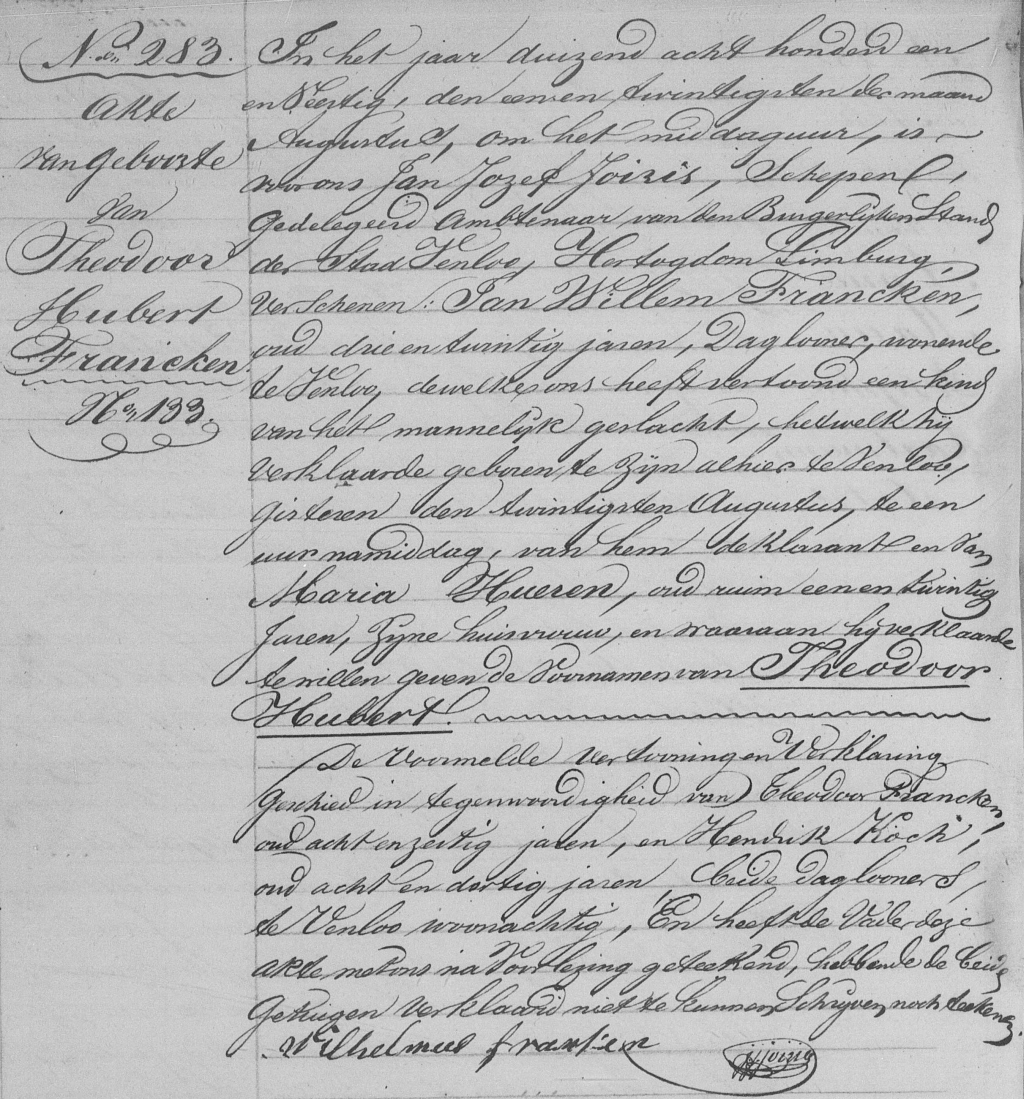 N.en 283.
Akte
van Geboorte
Van
Theodoor
Hubert
Francken
Nr 133.
In het jaar duizend acht honderd een
en Veertig, den eenen twintigsten der maand
Augustus, om het middaguur, is
voor ons Jan Jozef Joiris, Schepen,
Gedelegeerd Ambtenaar van den Burgerlijken Stand
der Stad Venloo, Hertogdom Limburg,
verschenen: Jan Willem Francken,
oud drie en twintig jaren, Daglooner, wonende
te Venloo, dewelke ons heeft vertoond een kind
van het mannelijk geslacht, hetwelk hij
verklaarde geboren te zijn alhier te Venloo,
Gisteren den twintigsten Augustus, te een
uur namiddag, van hem deklarant en Van
Maria Hueren, oud ruim eenen twintig
Jaren, Zijne huisvrouw, en waaraan hij verklaarde
te willen geven de Voornamen van Theodoor
Hubert.
De Voormelde vertooning en Verklaring
Geschied in tegenwoordigheid van Theodoor Francken,
oud acht en zestig jaren, en Hendrik Koch,
oud acht en dertig jaren Beide daglooners,
te Venloo woonachtig, En heeft de Vader deze
akte met ons na Voorlezing geteekend, hebbende de beide
Getuigen Verklaard niet te kunnen Schrijven noch teekenen.
Wilhelmus fransen
JJJoiris